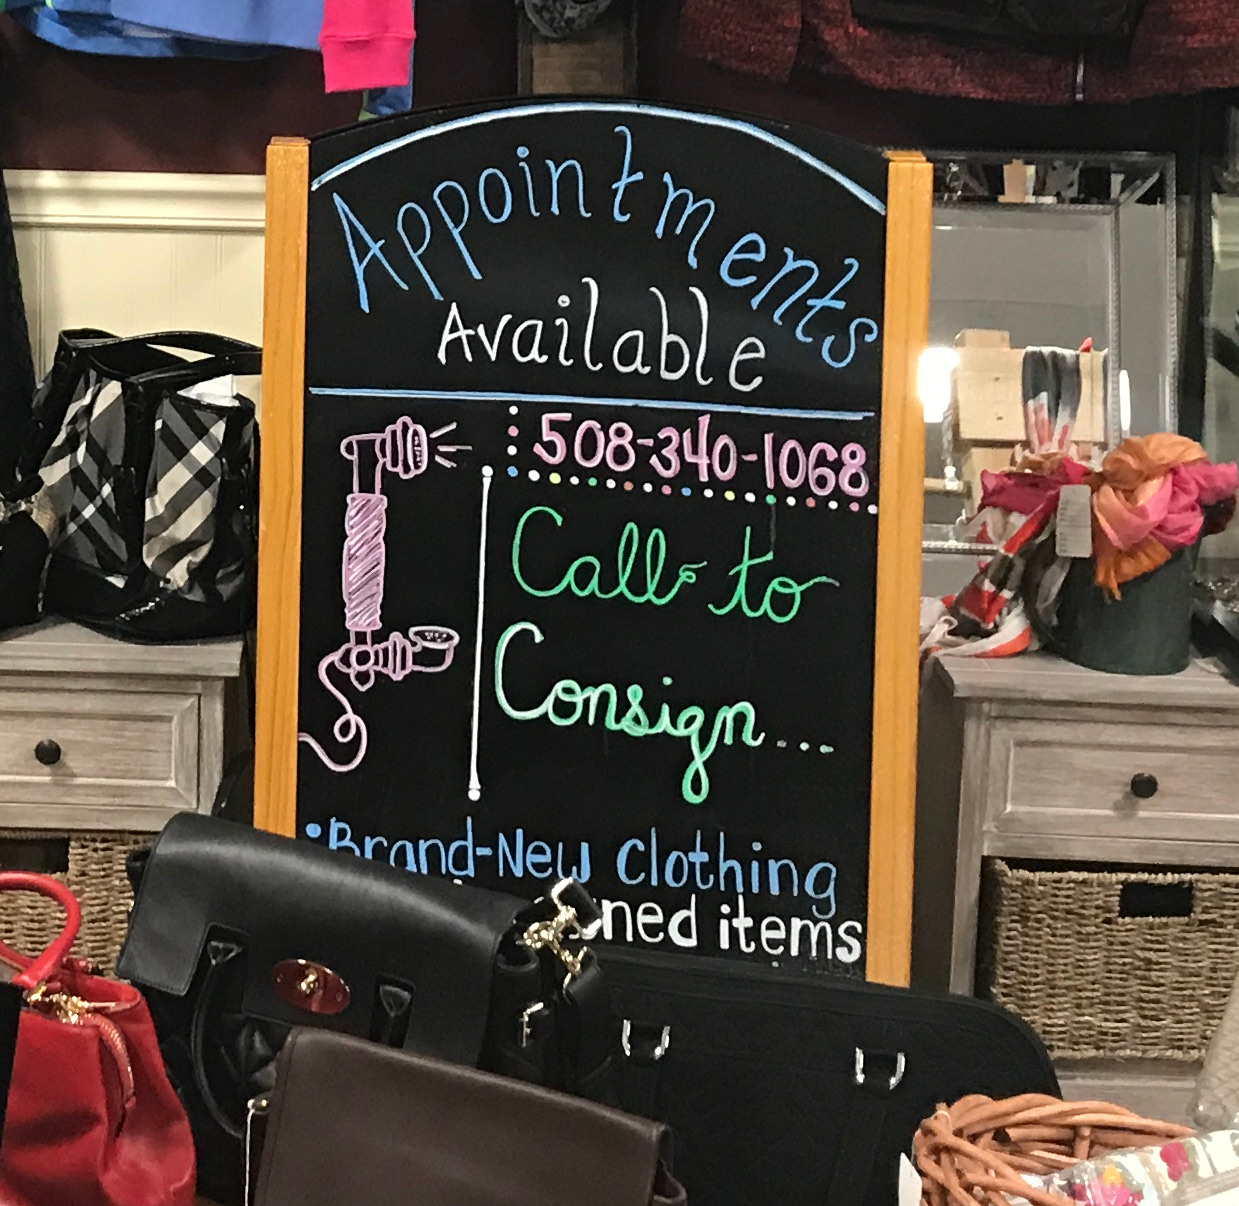 Appointments
Available
508-340-1068
Call to
Consign...
•Brand-New clothing
items